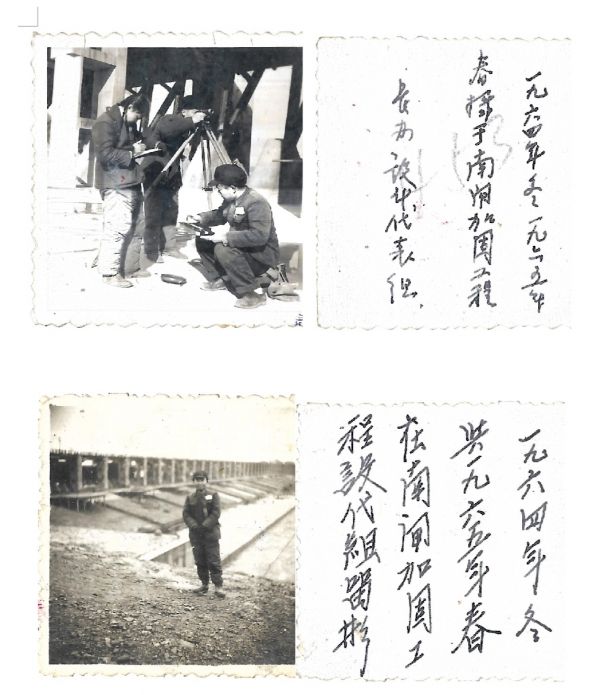 一九六四年冬一九六五年
春摄于南闸加固工程
长办設计代表组.
一九六四年冬
與一九六五年春
在南闸加固工
程設代組留影